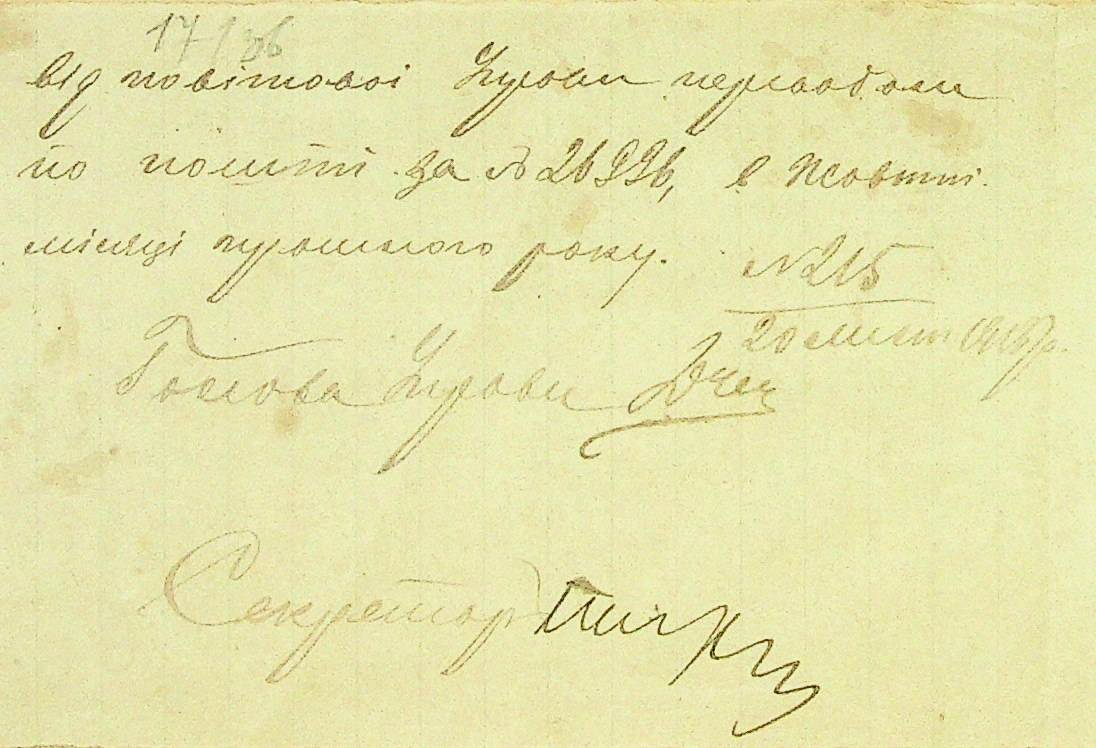 17/
від повітовоі Управи переводом
по пошті за № 26996, в Жовтні
місяці прошлого року.
№ 215
20 лист 1918 р.
Голова Управи
Секретар